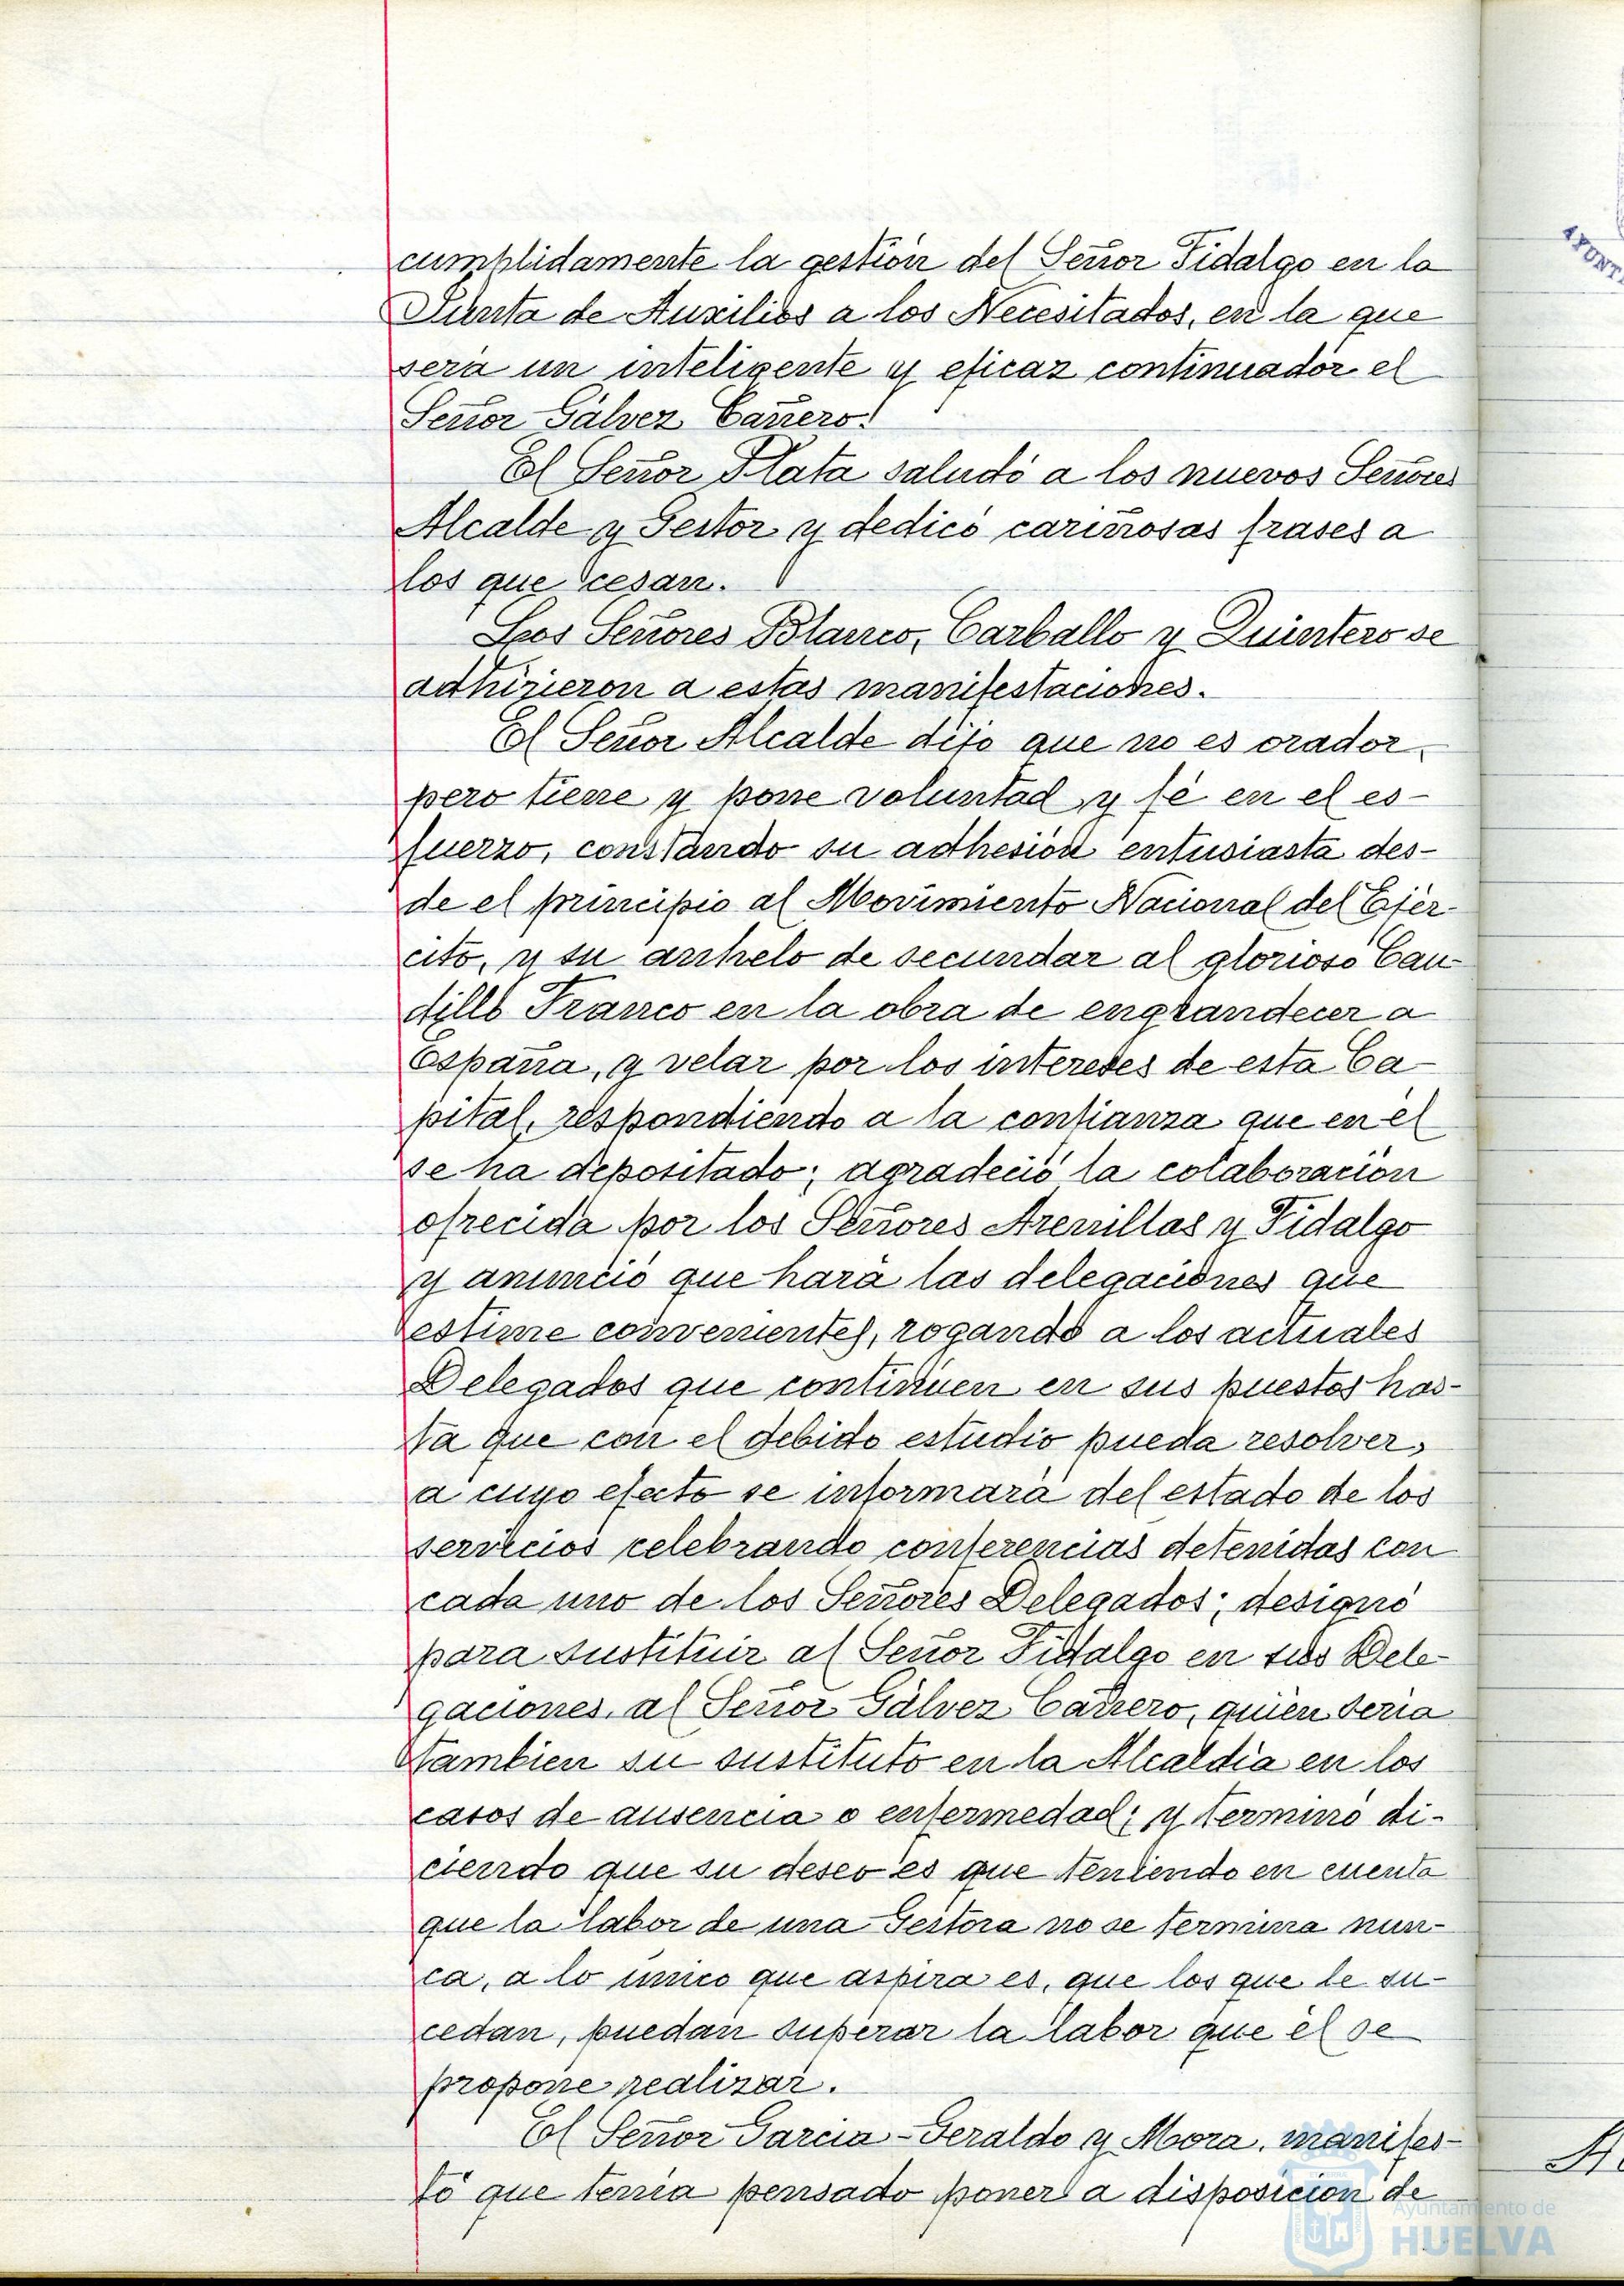 cumplidamente la gestión del Señor Fidalgo en la
Junta de Auxilios a los Necesitados, en la que
sera un inteligente y eficaz continuador el
Señor Gálvez Cañero.
El Señor Plata saludó a los nuevos Señores
Alcalde y Gestor y dedicó cariñosas frases a
los que cesan.
Los Señores Blanco, Carballo y Quintero se
adhirieron a estas manifestaciones.
El Señor Alcalde dijo que no es orador,
pero tiene y pone voluntad y fé en el es-
fuerzo, constando su adhesión entusiasta des-
de el principio al Movimiento Nacional del Ejér-
cito, y su anhelo de secundar al glorioso Cau-
dillo Franco en la obra de engrandecer a
España, y velar por los intereses de esta Ca-
pital, respondiendo a la confianza que en él
se ha depositado; agradeció la colaboración
ofrecida por los Señores Arenillas y Fidalgo
y anunció que hará las delegaciones que
estime convenientes, rogando a los actuales
Delegados que continúen en sus puestos has-
ta que con el debido estudio pueda resolver,
a cuyo efecto se informará del estado de los
servicios celebrando conferencias detenidas con
cada uno de los Señores Delegados; designó
para sustituir al Señor Fidalgo en sus Dele-
gaciones, al Señor Gálvez Cañero, quien seria
tambien su sustituto en la Alcaldia en los
casos de ausencia o enfermedad; y terminó di-
ciendo que su deseo es que teniendo en cuenta
que la labor de una Gestora no se termina nun-
ca, a lo único que aspira es, que los que le su-
cedan, puedan superar la labor que él se
propone realizar.
El Señor Garcia-Geraldo y Mora, manifes-
tó que tenía pensado poner a disposición de
Ayuntamiento de
HUELVA